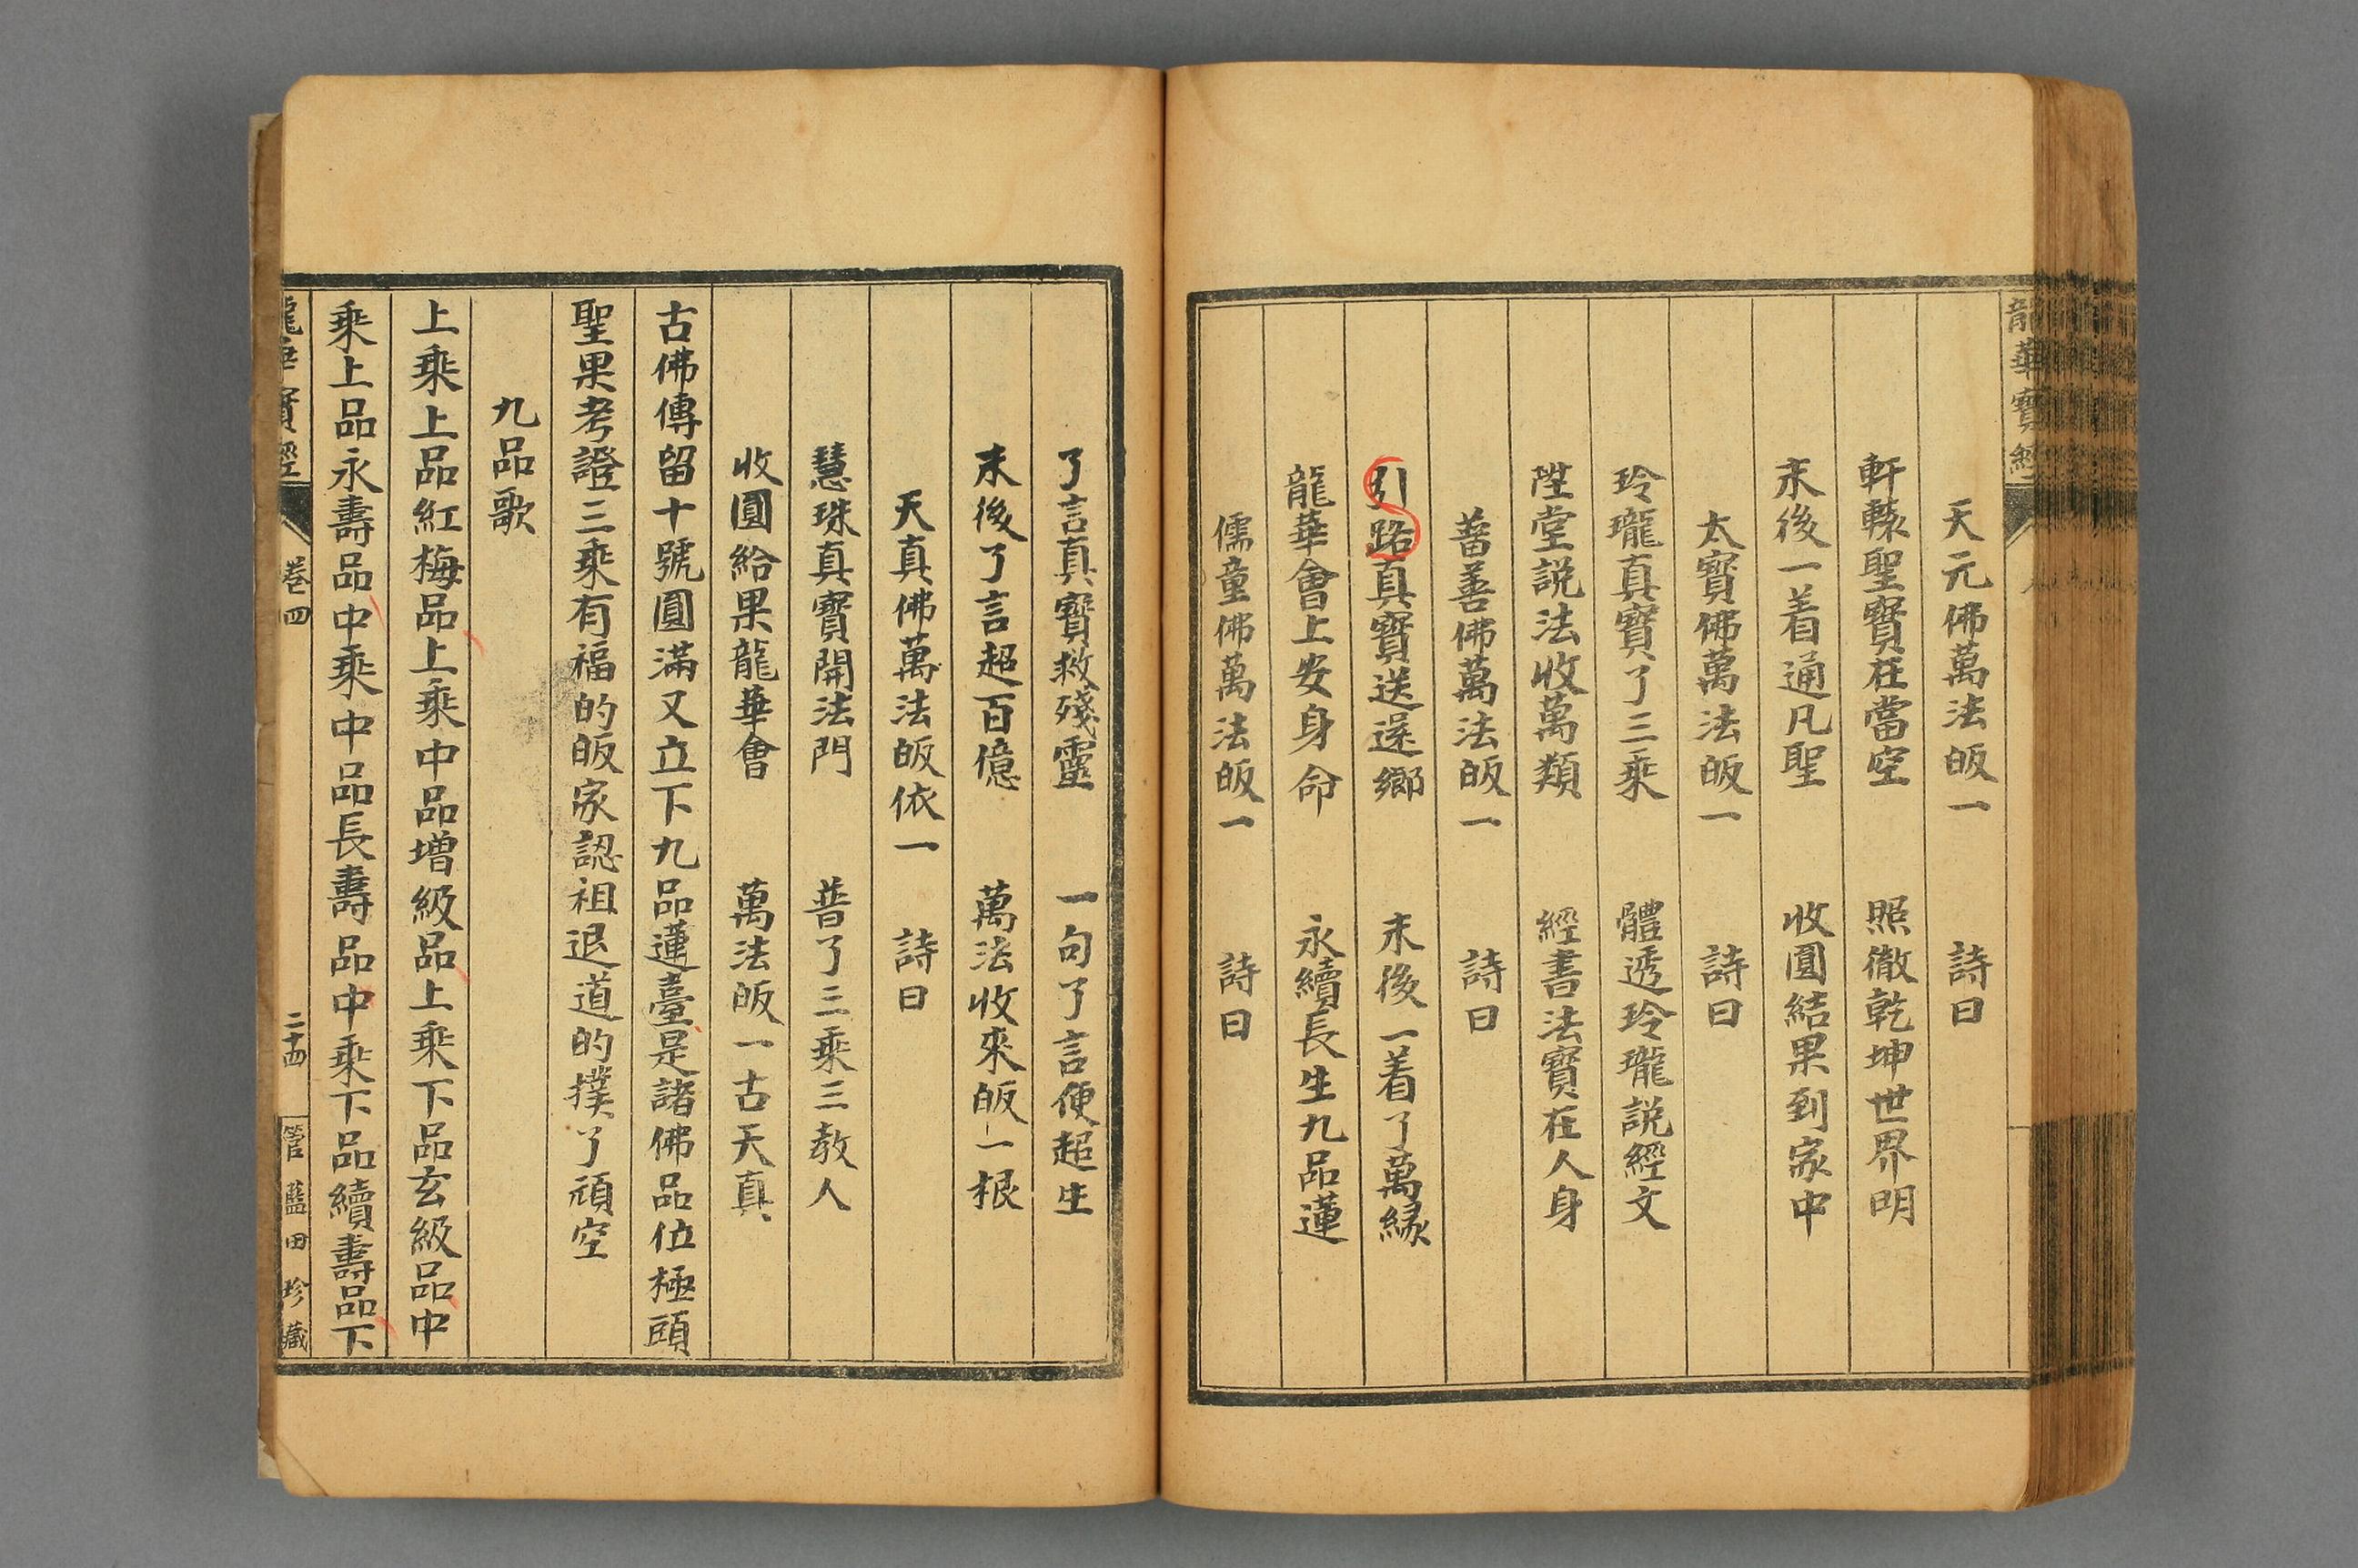 龍華寶經
天元佛萬法皈一　詩曰
軒轅聖寶在當空　照徹乾坤世界明
末後一着通凡聖　收圓結果到家中
太寶佛萬法皈一　詩曰
玲瓏真寶了三乘　體透玲瓏説經文
陞堂説法收萬類　經書法寶在人身
蓄善佛萬法皈一　詩曰
引路真寶送還鄉　末後一着了萬緣
龍華會上安身命　永續長生九品蓮
儒童佛萬法皈一　詩曰
了言真寶救殘靈　一句了言便超生
末後了言超百億　萬法收來皈一根
天真佛萬法皈依一　詩曰
慧珠真寶開法門　普了三乘三教人
收圓給果龍華會　萬法皈一古天真
古佛傳留十號圓滿又立下九品蓮臺是諸佛品位極頭
聖果考證三乘有福的皈家認祖退道的撲了頑空
九品歌
上乘上品紅梅品上乘中品增級品上乘下品玄級品中
乘上品永壽品中乘中品長壽品中乘下品續壽品下
龍華寶經　卷四　二十四　管藍田珍藏